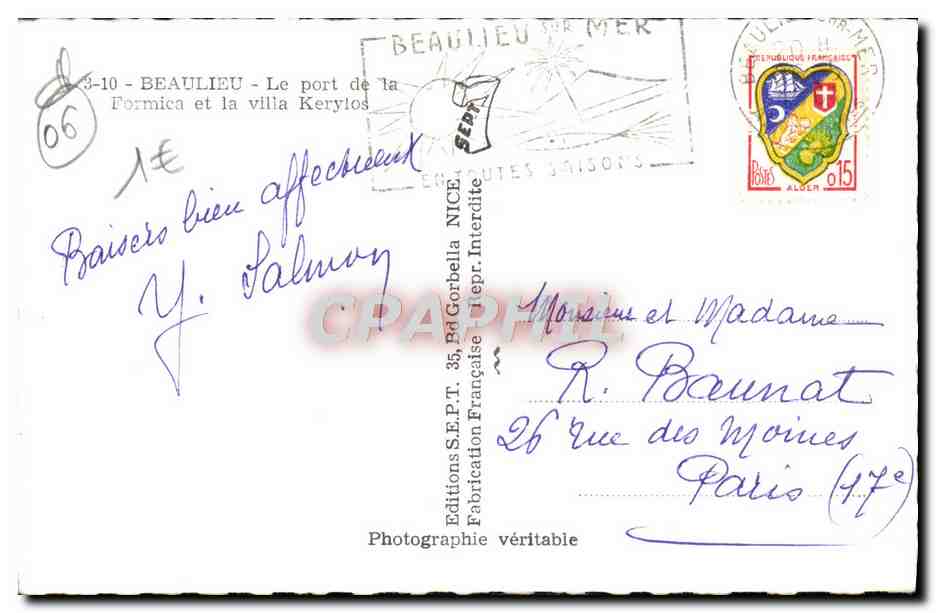 3-10 - BEAULIEU - Le port de la
Formica et la villa Kerylos
06
1€
BEAULIEU SUR MER
EN TOUTES SAISONS
BEAULIEU SUR MER
REPUBLIQUE FRANÇAISE
POSTES 0,15
ALGER
Baisers bien affectueux
Y. Salmon
SEPT
Editions S.E.P.T. 35, Bd Gorbella NICE
Fabrication Française Repr. Interdite
CPAPHIL
Monsieur et Madame
R. Baunat
26 rue des Moines
Paris (17e)
Photographie véritable